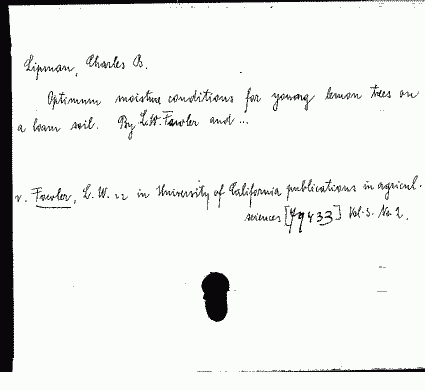 Lipman, Charles B.
Optimum moisture conditions for young lemon trees on
a loam soil. By L.W. Fowler and ...
v. Fowler, L. W. in University of California publications in agricul.
sciences [49433] Vol. 3. No. 2.